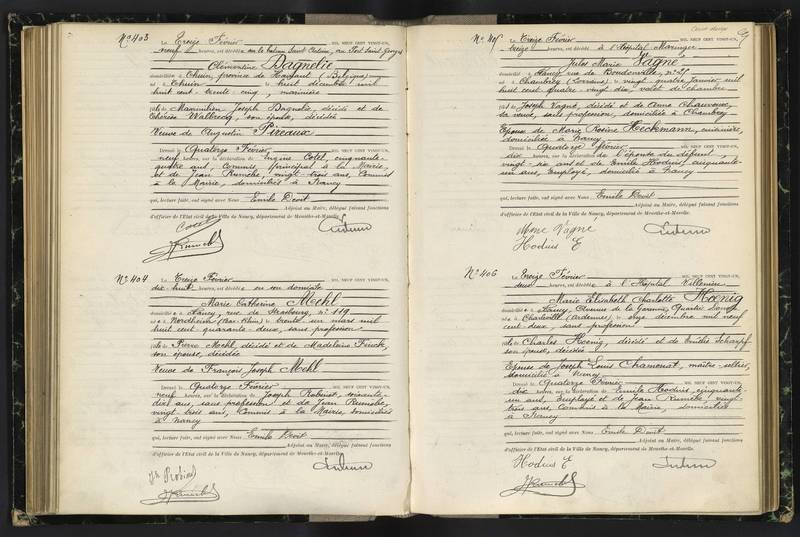 N° 403
Le Treize Février mil neuf cent vingt-un,
neuf heures, est décédée sur le bateau Saint Antoine, au Port Saint Georges
Clémentine Dagnelie
domiciliée à Thuin, province de Hainaut (Belgique)
née à Thuin le huit décembre mil
huit cent trente cinq, marinière
fille de Maximilien Joseph Dagnelie, décédé et de
Thérèse Walbrecq, son épouse, décédée
Veuve de Augustin Pireaux
Dressé le Quatorze Février
neuf heures, sur la déclaration de Eugène Colet, cinquante-
quatre ans, Commis principal à la Mairie,
et de Jean Ruméche, vingt-trois ans, Commis
à la Mairie, domiciliés à Nancy
qui, lecture faite, ont signé avec Nous Emile Droit
Adjoint au Maire, délégué faisant fonctions
d'officier de l'Etat civil de la Ville de Nancy, département de Meurthe-et-Moselle.
N° 404
Le Treize Février mil neuf cent vingt-un,
dix huit heures, est décédée en son domicile
Marie Catherine Mehl
domiciliée à Nancy, rue de Strasbourg, n° 119
née à Nordheim (Bas-Rhin) le trente un mars mil
huit cent quarante deux, sans profession
fille de Pierre Mehl, décédé et de Madeleine Finck,
son épouse, décédée
Veuve de François Joseph Mehl
Dressé le Quatorze Février
neuf heures, sur la déclaration de Joseph Robinet, soixante-
dix ans, sans profession et de Jean Ruméche,
vingt trois ans, Commis à la Mairie, domiciliés
à Nancy
qui, lecture faite, ont signé avec Nous Emile Droit
Adjoint au Maire, délégué faisant fonctions
d'officier de l'Etat civil de la Ville de Nancy, département de Meurthe-et-Moselle.
69
N° 405
Le Treize Février mil neuf cent vingt-un,
treize heures, est décédé à l'Hôpital Maringer
Jules Marie Vagné
domicilié à Nancy rue de Boudonville, n° 25
né à Chambrey (Lorraine) le vingt quatre Janvier mil
huit cent quatre-vingt dix, valet de chambre
fils de Joseph Vagné, décédé et de Anna Chauvaux,
sa veuve, sans profession, domiciliée à Chambrey
Epoux de Marie Rosine Heckmann, cuisinière,
domiciliée à Nancy
Dressé le Quatorze février
dix heures, sur la déclaration de l'épouse du défunt,
vingt six ans et de Emile Hodius, cinquante-
un ans, employé, domicilié à Nancy
qui, lecture faite, ont signé avec Nous Emile Droit
Adjoint au Maire, délégué faisant fonctions
d'officier de l'Etat civil de la Ville de Nancy, département de Meurthe-et-Moselle.
Mme Vagné
Hodius E
N° 406
Le Treize Février mil neuf cent vingt-un,
deux heures, est décédée à l'Hôpital Villemin
Marie Elisabeth Charlotte Hœnig
domiciliée à Nancy, Avenue de la Garenne, Quartier
née à Charleville (Ardennes) le onze décembre mil neuf
cent deux, sans profession
fille de Charles Hœnig, décédé et de Emilie Scharpf
son épouse, décédée
Epouse de Joseph Louis Chamonat, maître-sellier,
domiciliée à Nancy
Dressé le Quatorze Février
dix heures, sur la déclaration de Emile Hodius, cinquante-
un ans, employé et de Jean Ruméche vingt-
trois ans, Commis à la Mairie, domiciliés
à Nancy
qui, lecture faite, ont signé avec Nous Emile Droit
Adjoint au Maire, délégué faisant fonctions
d'officier de l'Etat civil de la Ville de Nancy, département de Meurthe-et-Moselle.
Hodius E